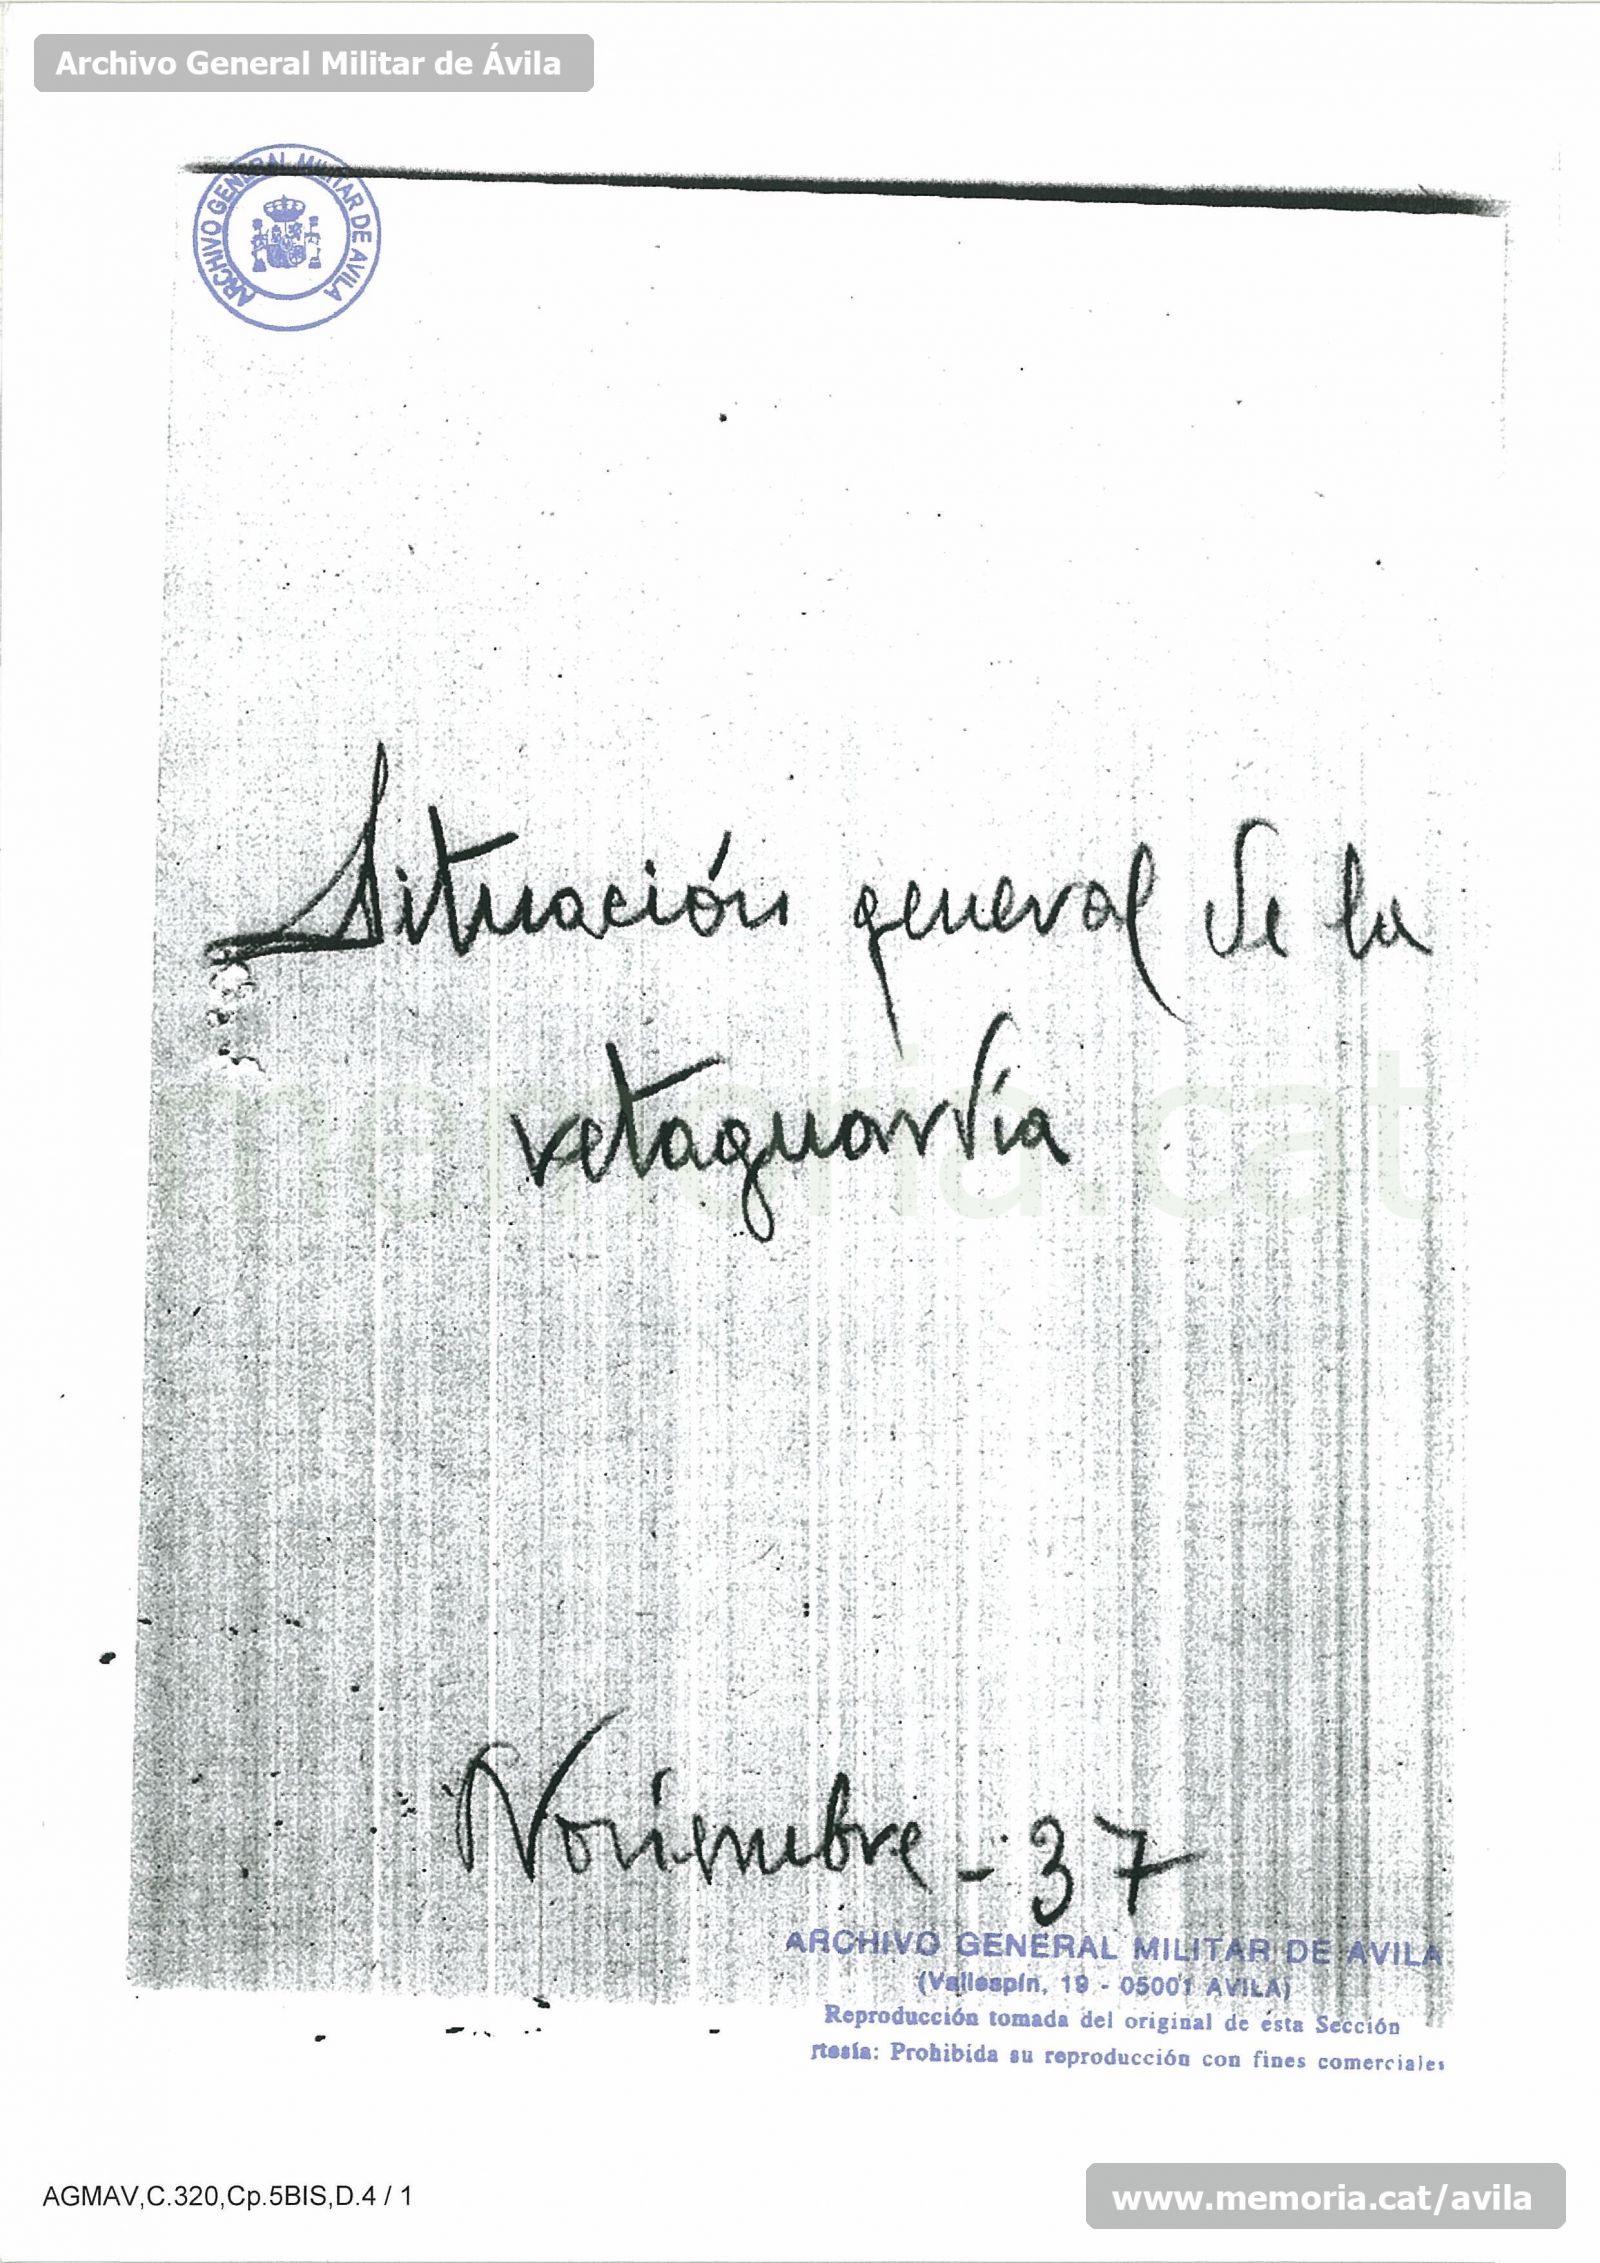 Archivo General Militar de Ávila
ARCHIVO GENERAL MILITAR DE AVILA
Situación general de la
retaguardia
memoria.cat
Noviembre - 37
ARCHIVO GENERAL MILITAR DE AVILA
(Vallespín, 19 - 05001 AVILA)
Reproducción tomada del original de esta Sección
rtesía: Prohibida su reproducción con fines comerciales
AGMAV,C.320,Cp.5BIS,D.4 / 1
www.memoria.cat/avila